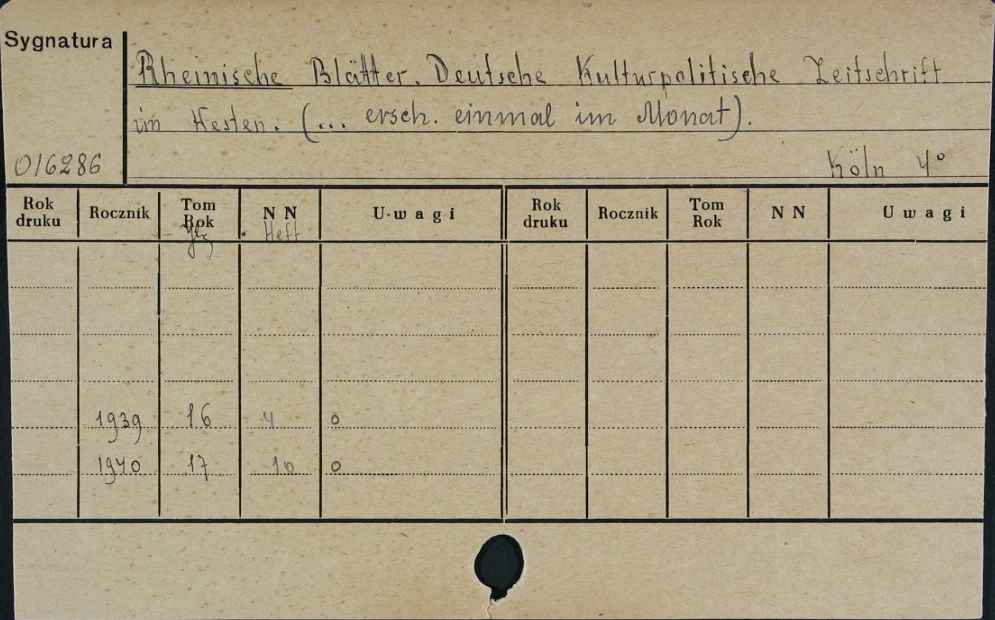 Sygnatura
Rheinische Blätter. Deutsche Kulturpolitische Zeitschrift
im Westen. (... ersch. einmal im Monat).
016286
Köln 4°
Rok druku Rocznik Tom Rok NN U-wagi Rok druku Rocznik Tom Rok NN Uwagi
Jhg. Heft
1939 16 4 o
1940 17 10 o